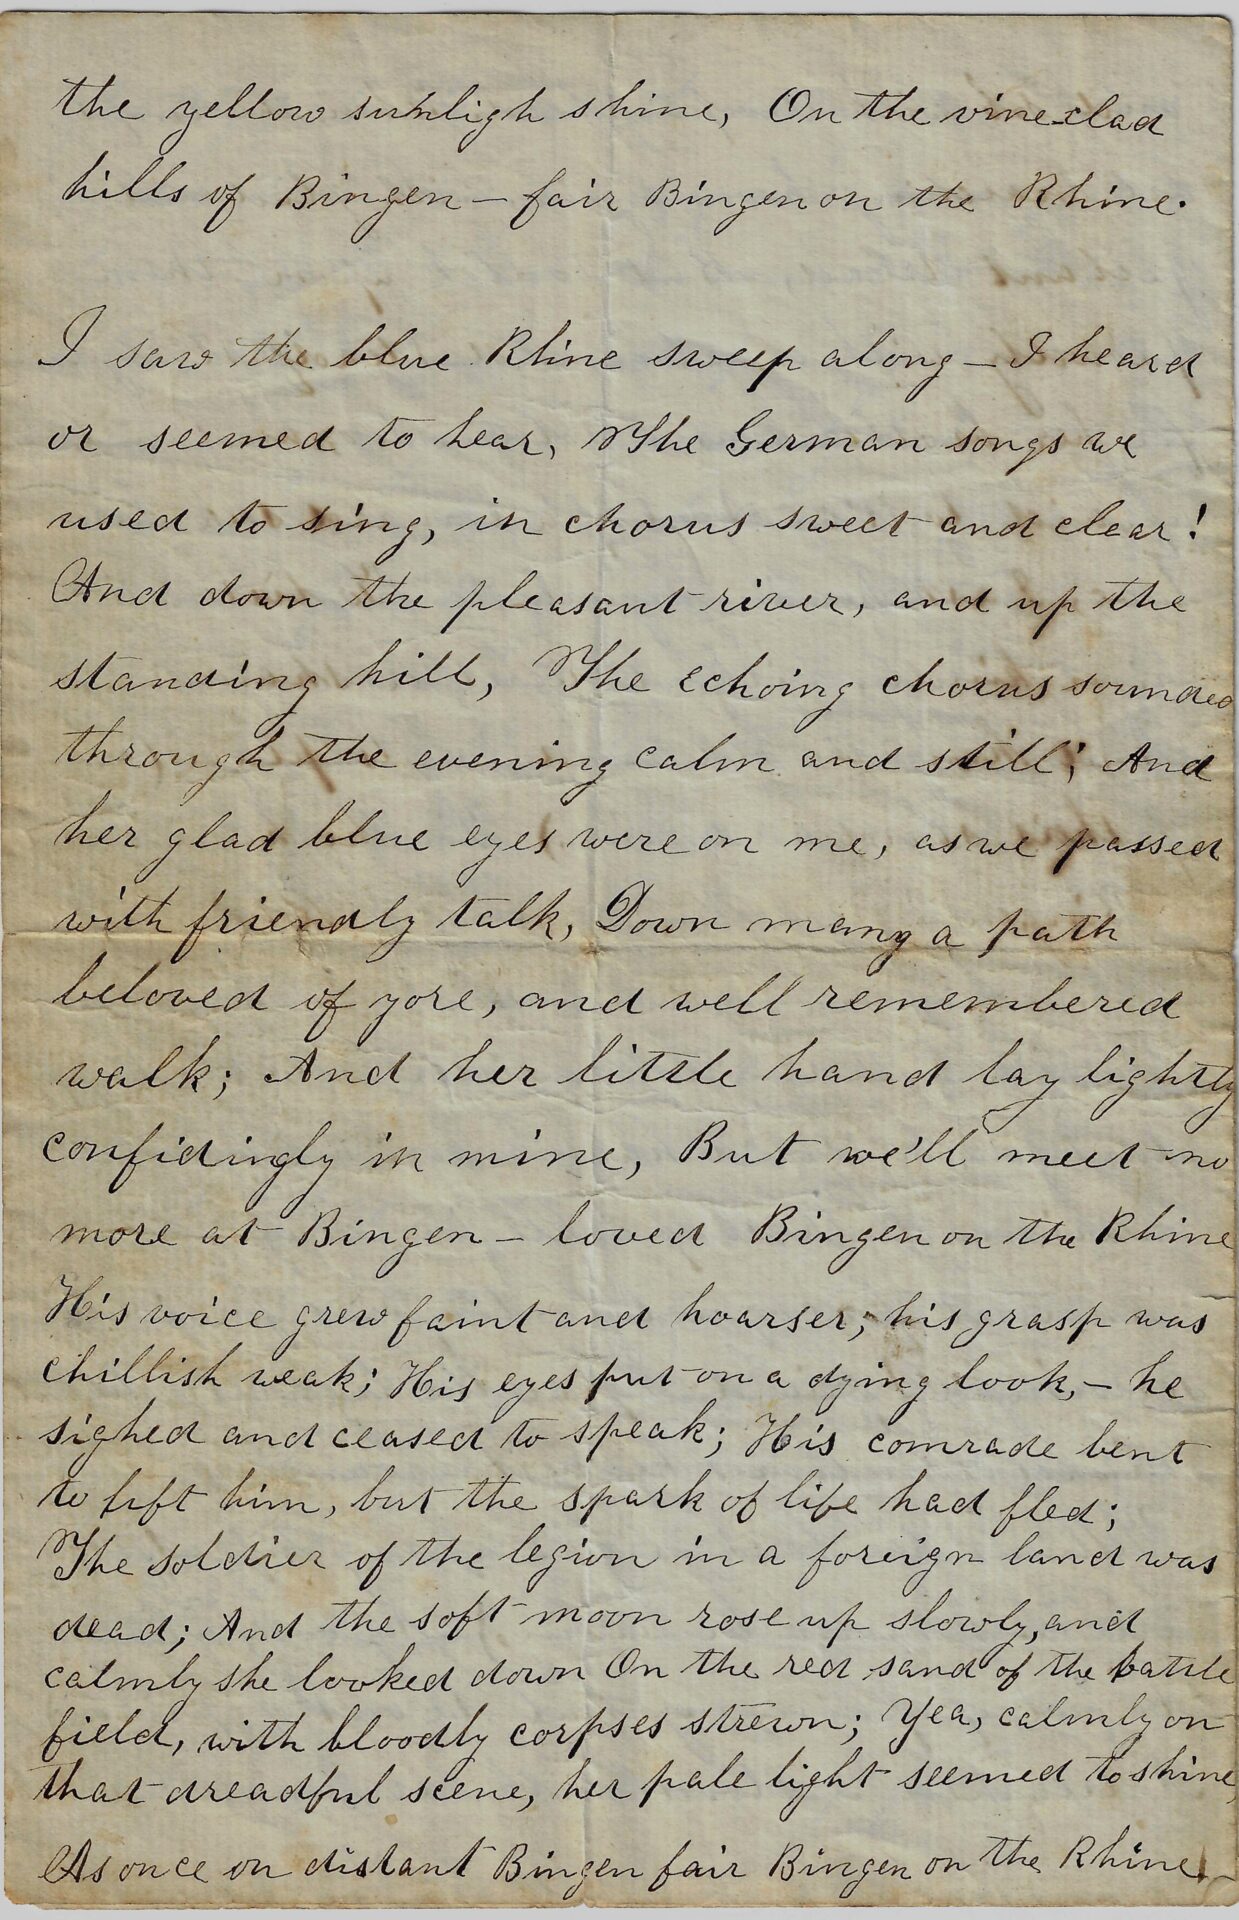 the yellow sunligh shine, On the vine-clad
hills of Bingen - fair Bingen on the Rhine.
I saw the blue Rhine sweep along - I heard
or seemed to hear, The German songs we
used to sing, in chorus sweet and clear!
And down the pleasant river, and up the
standing hill, The echoing chorus sounded
through the evening calm and still; And
her glad blue eyes were on me, as we passed
with friendly talk, Down many a path
beloved of yore, and well remembered
walk; And her little hand lay lightly
confidingly in mine, But we'll meet no
more at Bingen - loved Bingen on the Rhine
His voice grew faint and hoarser; his grasp was
chillish weak; His eyes put on a dying look, - he
sighed and ceased to speak; His comrade bent
to lift him, but the spark of life had fled;
The soldier of the legion in a foreign land was
dead; And the soft moon rose up slowly, and
calmly she looked down On the red sand of the battle
field, with bloodly corpses strewn; Yea, calmly on
that dreadful scene, her pale light seemed to shine,
As once on distant Bingen fair Bingen on the Rhine.